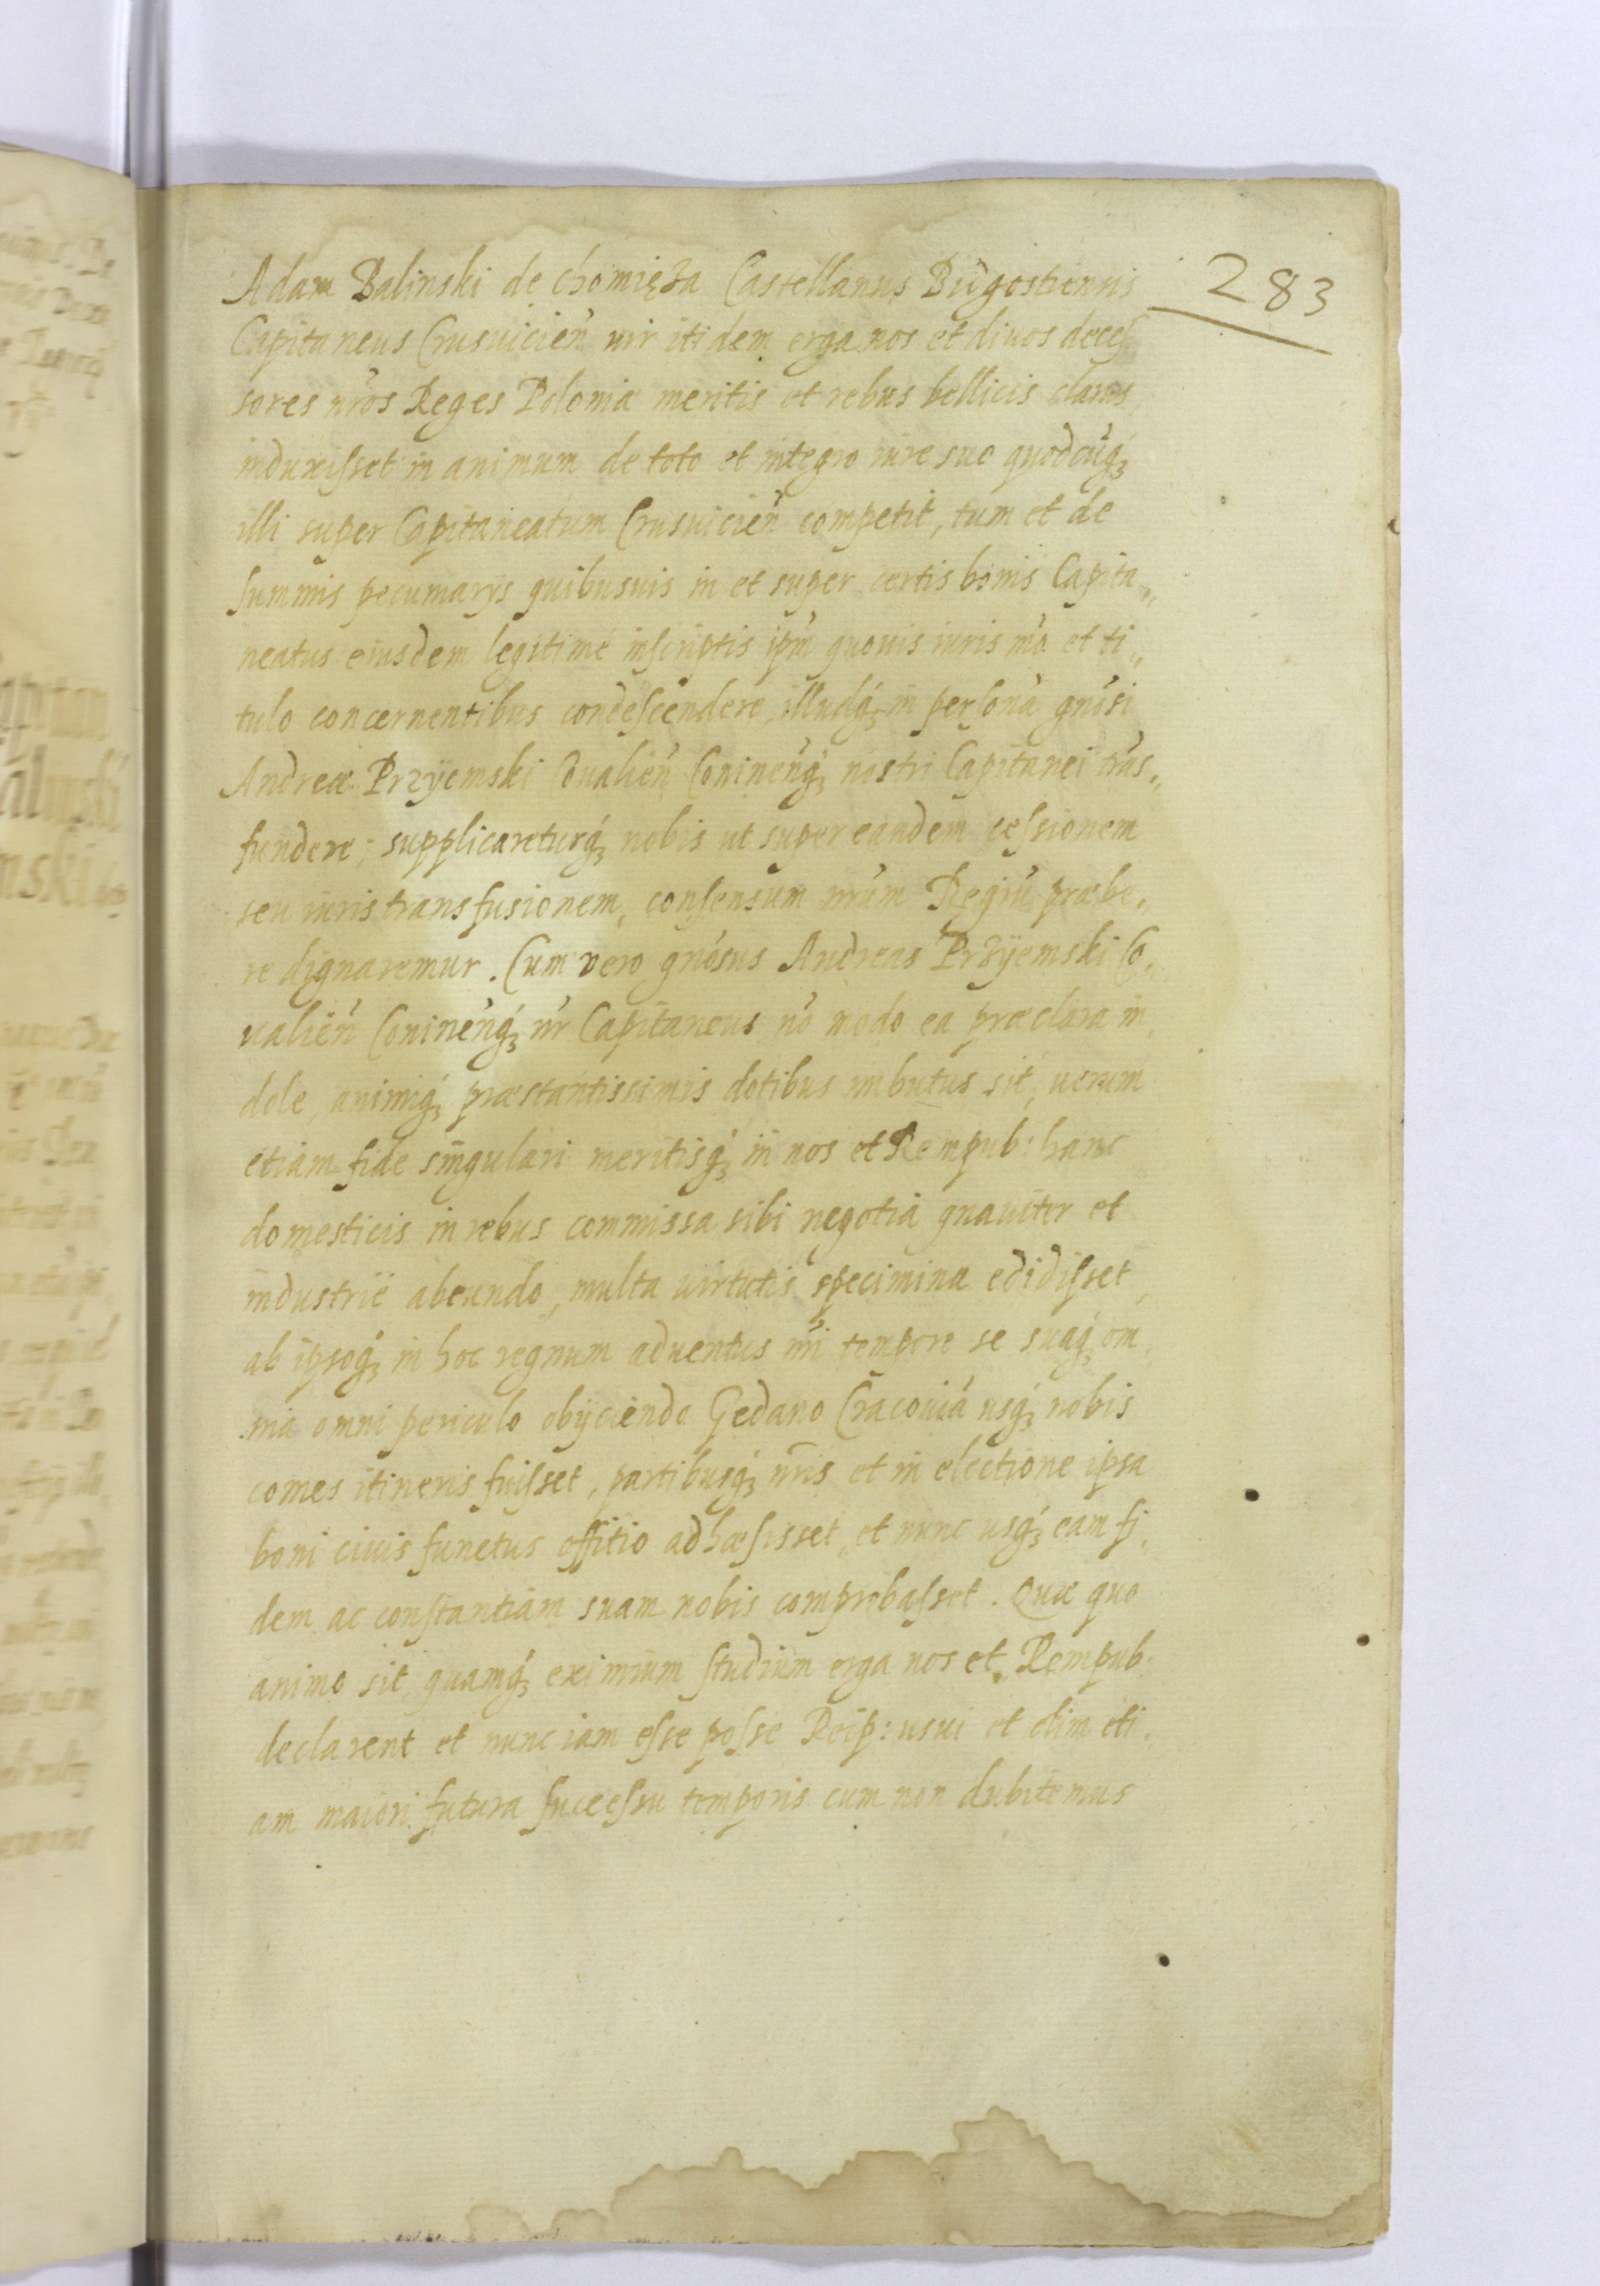 283
Adam Balinski de chomięza Castellanus Bidgostiensis
Capitaneus Crusuicien̄ uir itidem erga nos et diuos deces
sores nr̄os Reges Poloniæ meritis et rebus bellicis clarus,
induxisset in animum de toto et integro iure suo quodcūq;
illi super Capitaneatum Crusuicien̄ competit, tum et de
summis pecuniarys quibusuis in et super certis bonis Capita„
neatus eiusdem legitime inscriptis ipm̄ quouis iuris mō et ti„
tulo concernentibus condescendere, illudq; in personā gnōsi
Andreæ Przyemski Coualien̄ Coninen̄q; nostri Capitanei trās„
fundere; supplicareturq; nobis ut super eandem cessionem
seu iuris transfusionem, consensum nr̄um Regiū præbe„
re dignaremur. Cum vero gnōsus Andreas Przyemski Co„
ualien̄ Coninen̄q; nr̄ Capitaneus nō modo ea præclara in
dole, animiq; præstantissimis dotibus imbutus sit, uerum
etiam fide singulari meritisq; in nos et Rempub: hanc
domesticis in rebus commissa sibi negotia gnauiter et
industrie abeundo, multa uirtutis specimina edidisset,
ab ipsoq; in hoc regnum aduentus nr̄i tempore se suaq; om
nia omni periculo obijciendo Gedano Cracouiā usq; nobis
comes itineris fuisset, partibusq; nr̄is et in electione ipsa
boni ciuis functus offitio adhæsisset, et nunc usq; eam fi
dem ac constantiam suam nobis comprobasset. Quæ quo
animo sit quamq; eximium studium erga nos et Rempub.
declarent et nunc iam esse posse Reip: usui et olim eti
am maiori futura successu temporis cum non dubitemus